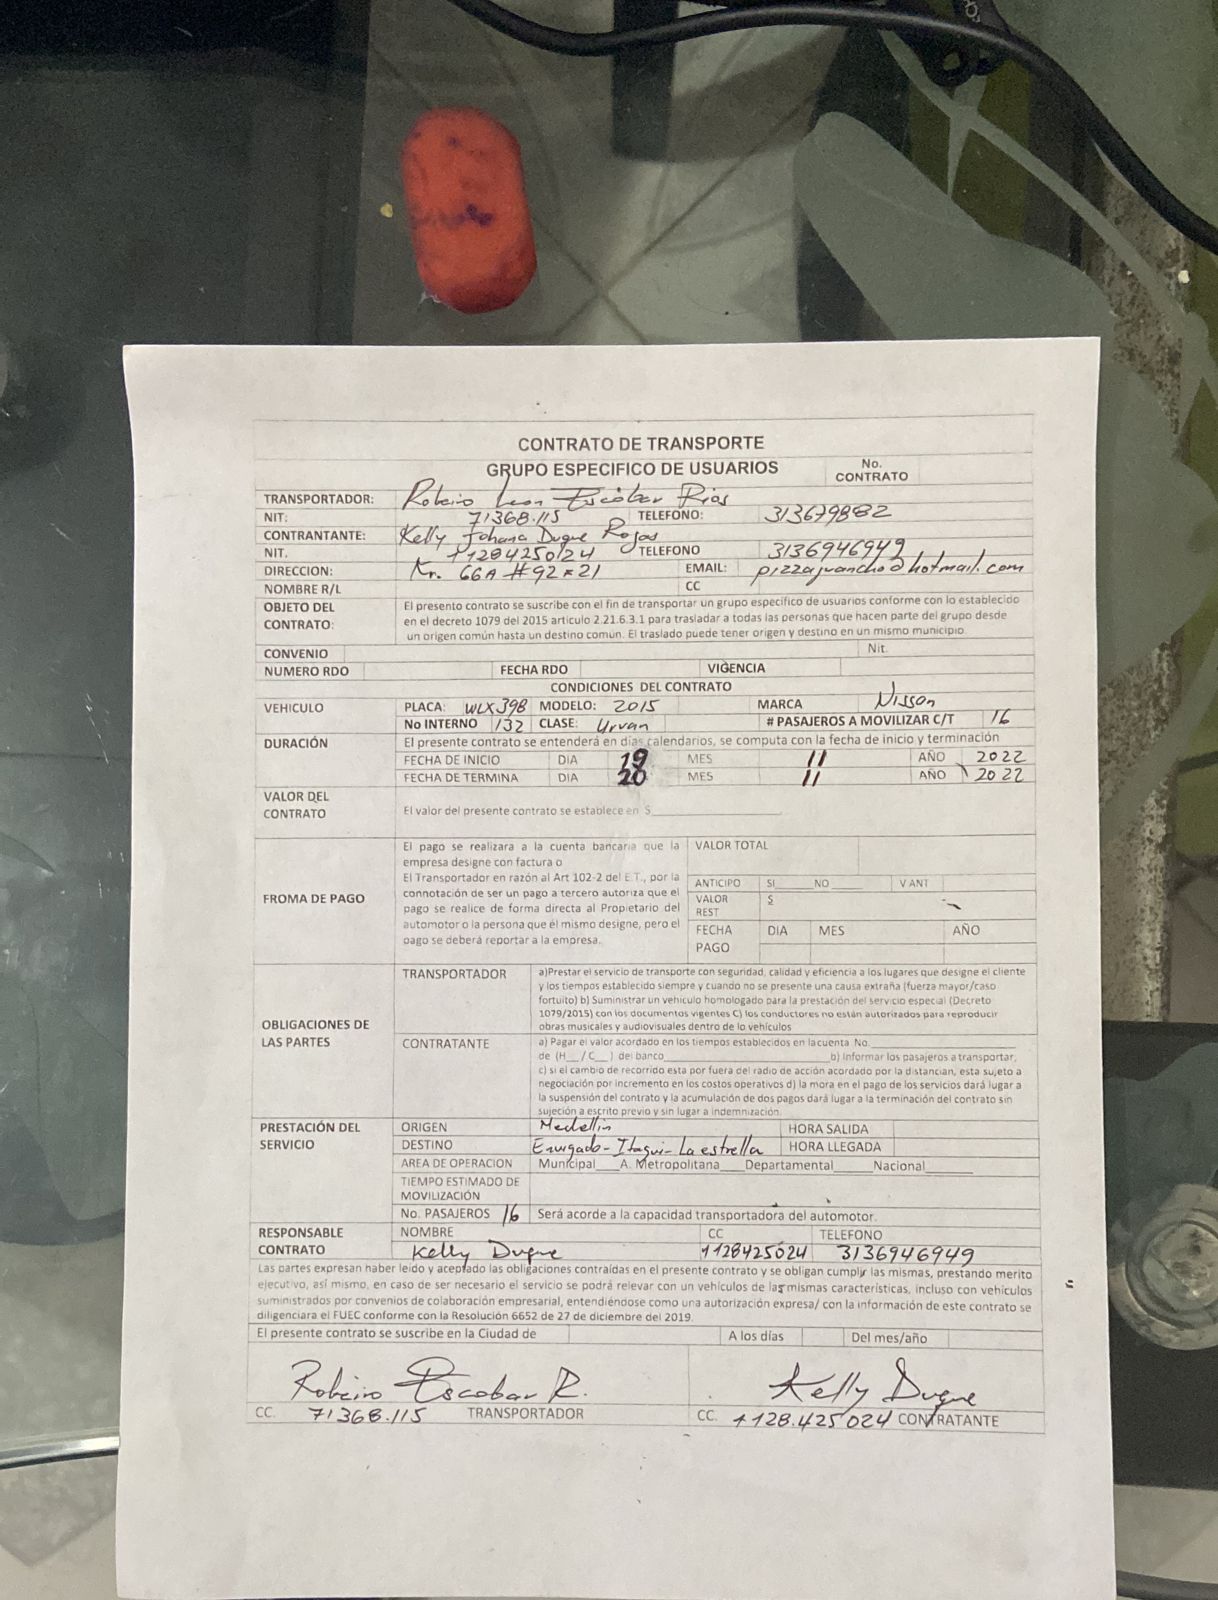 CONTRATO DE TRANSPORTE
GRUPO ESPECIFICO DE USUARIOS No. CONTRATO
TRANSPORTADOR: Robeiro Leon Escobar Rios
NIT: 71368.115 TELEFONO: 313679882
CONTRANTANTE: Kelly Johana Duque Rojas
NIT. 1128425024 TELEFONO 3136946949
DIRECCION: Kr. 66A # 92 = 21 EMAIL: pizzajuancho@hotmail.com
NOMBRE R/L CC
OBJETO DEL CONTRATO: El presento contrato se suscribe con el fin de transportar un grupo especifico de usuarios conforme con lo establecido
en el decreto 1079 del 2015 articulo 2.21.6.3.1 para trasladar a todas las personas que hacen parte del grupo desde
un origen común hasta un destino común. El traslado puede tener origen y destino en un mismo municipio
CONVENIO Nit.
NUMERO RDO FECHA RDO VIGENCIA
CONDICIONES DEL CONTRATO
VEHICULO PLACA: WLX398 MODELO: 2015 MARCA Nissan
No INTERNO 132 CLASE: Urvan # PASAJEROS A MOVILIZAR C/T 16
DURACIÓN El presente contrato se entenderá en días calendarios, se computa con la fecha de inicio y terminación
FECHA DE INICIO DIA 19 MES 11 AÑO 2022
FECHA DE TERMINA DIA 20 MES 11 AÑO 2022
VALOR DEL CONTRATO El valor del presente contrato se establece en $
FROMA DE PAGO El pago se realizara a la cuenta bancaria que la
empresa designe con factura o
El Transportador en razón al Art 102-2 del E.T., por la
connotación de ser un pago a tercero autoriza que el
pago se realice de forma directa al Propietario del
automotor o la persona que él mismo designe, pero el
pago se deberá reportar a la empresa.
VALOR TOTAL
ANTICIPO SI NO V ANT
VALOR REST $
FECHA PAGO DIA MES AÑO
OBLIGACIONES DE LAS PARTES
TRANSPORTADOR a)Prestar el servicio de transporte con seguridad, calidad y eficiencia a los lugares que designe el cliente
y los tiempos establecido siempre y cuando no se presente una causa extraña (fuerza mayor/caso
fortuito) b) Suministrar un vehículo homologado para la prestación del servicio especial (Decreto
1079/2015) con los documentos vigentes C) los conductores no están autorizados para reproducir
obras musicales y audiovisuales dentro de lo vehículos
CONTRATANTE a) Pagar el valor acordado en los tiempos establecidos en la cuenta No.
de (H__/C__) del banco b) Informar los pasajeros a transportar,
c) si el cambio de recorrido esta por fuera del radio de acción acordado por la distancian, esta sujeto a
negociación por incremento en los costos operativos d) la mora en el pago de los servicios dará lugar a
la suspensión del contrato y la acumulación de dos pagos dará lugar a la terminación del contrato sin
sujeción a escrito previo y sin lugar a indemnización.
PRESTACIÓN DEL SERVICIO
ORIGEN Medellin HORA SALIDA
DESTINO Envigado-Itagui-La estrella HORA LLEGADA
AREA DE OPERACION Municipal___A. Metropolitana___Departamental___Nacional___
TIEMPO ESTIMADO DE MOVILIZACIÓN
No. PASAJEROS 16 Será acorde a la capacidad transportadora del automotor.
RESPONSABLE CONTRATO NOMBRE CC TELEFONO
Kelly Duque 1128425024 3136946949
Las partes expresan haber leído y aceptado las obligaciones contraídas en el presente contrato y se obligan cumplir las mismas, prestando merito
ejecutivo, así mismo, en caso de ser necesario el servicio se podrá relevar con un vehículos de las mismas características, incluso con vehículos
suministrados por convenios de colaboración empresarial, entendiéndose como una autorización expresa/ con la información de este contrato se
diligenciara el FUEC conforme con la Resolución 6652 de 27 de diciembre del 2019.
El presente contrato se suscribe en la Ciudad de A los días Del mes/año
Robeiro Escobar R. Kelly Duque
CC. 71368.115 TRANSPORTADOR CC. 1128.425024 CONTRATANTE